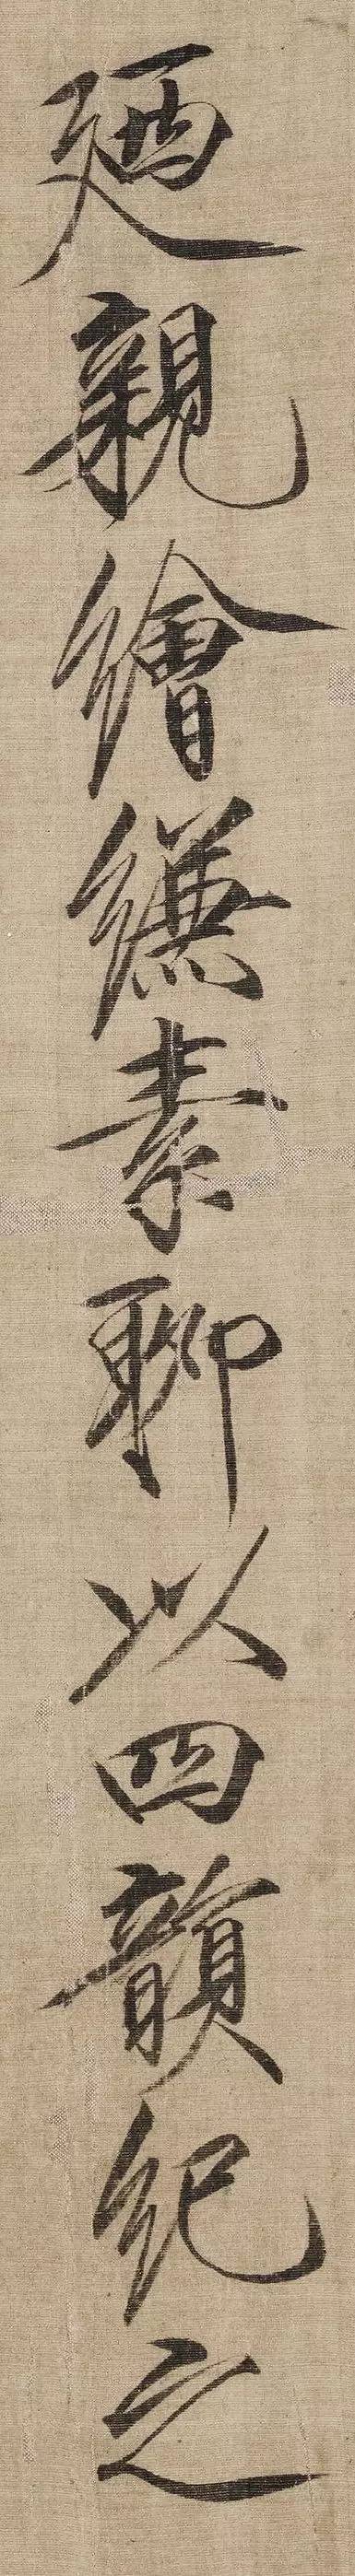 廼親繪縑素聊以四韻紀之